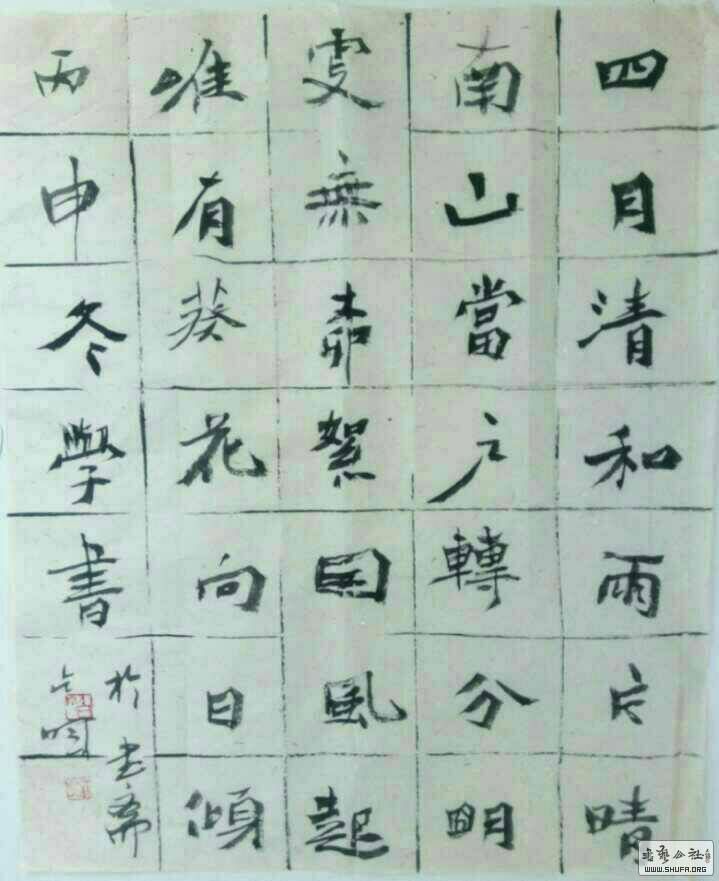 四月清和雨乍晴
南山當户轉分明
更無桺絮因風起
惟有葵花向日傾
丙申冬學書
於書斋
书艺公社
WWW.SHUFA.ORG